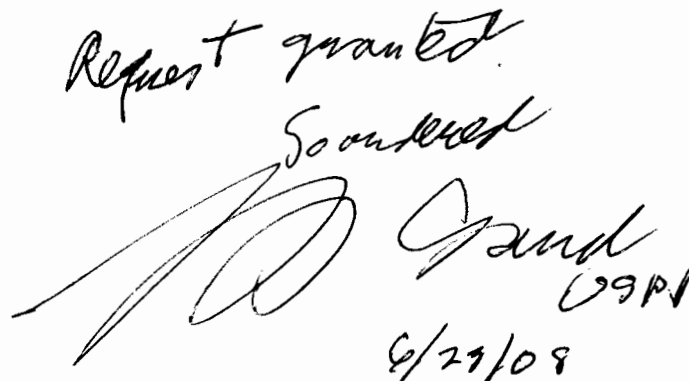 Request granted.
So ordered
USDJ
6/23/08